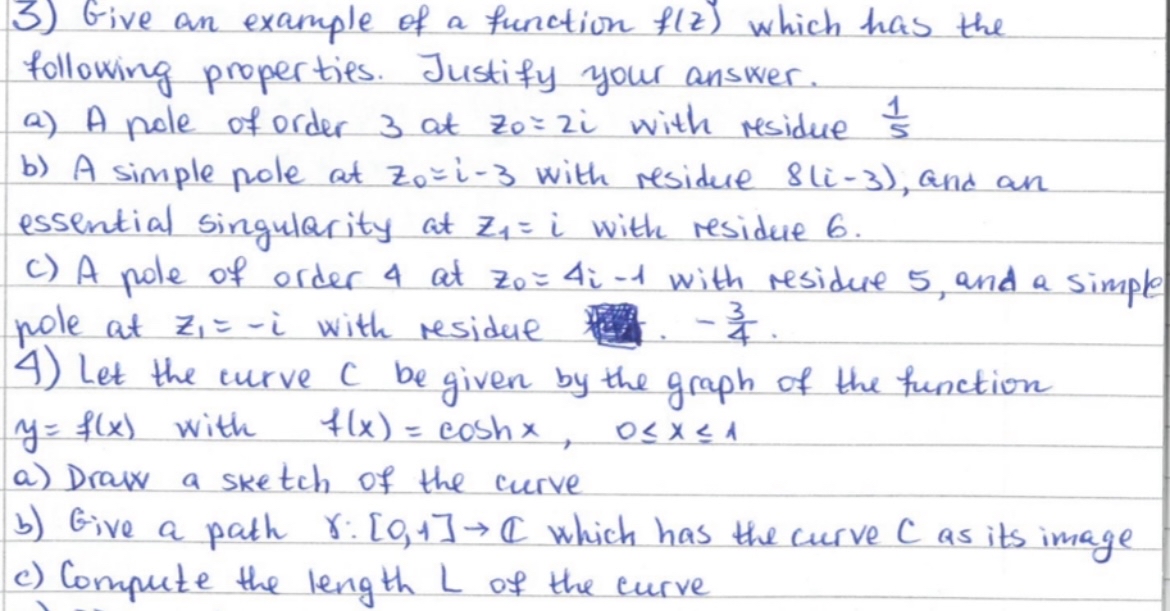 3) Give an example of a function f(z) which has the
following properties. Justify your answer.
a) A pole of order 3 at z₀=2i with residue 1/5
b) A simple pole at z₀=i-3 with residue 8(i-3), and an
essential singularity at z₁=i with residue 6.
c) A pole of order 4 at z₀=4i-1 with residure 5, and a simple
pole at z₁=-i with residue . -3/4.
4) Let the curve C be given by the graph of the function
y=f(x) with f(x)=cosh x, 0≤x≤1
a) Draw a sketch of the curve
b) Give a path γ:[0,1]→ℂ which has the curve C as its image
c) Compute the length L of the curve